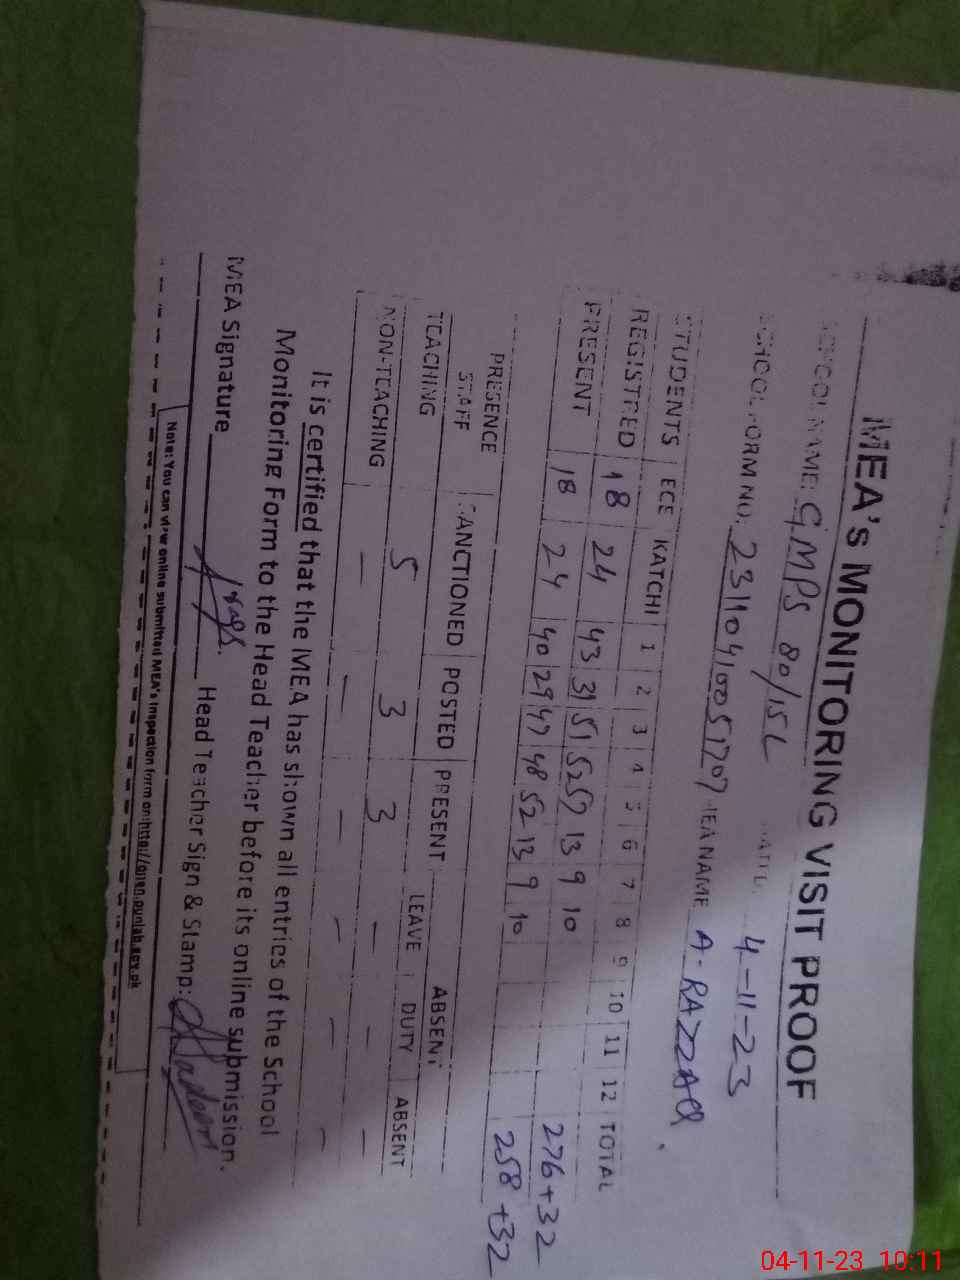 MEA's MONITORING VISIT PROOF
SCHOOL NAME: G.MPS 80/15L DATE: 4-11-23
SCHOOL FORM NO. MEA NAME A-RAZZAQ
STUDENTS ECE KATCHI 1 2 3 4 5 6 7 8 9 10 11 12 TOTAL
REGISTRED 18 24 43 31 51 52 57 13 9 10 276+32
PRESENT 18 24 40 29 47 48 52 13 9 10 258+32
PRESENCE ABSENT
STAFF SANCTIONED POSTED PRESENT LEAVE DUTY ABSENT
TEACHING 5 3 3 - - -
NON-TEACHING - - - - - -
It is certified that the MEA has shown all entries of the School
Monitoring Form to the Head Teacher before its online submission.
MEA Signature Head Teacher Sign & Stamp:
Note: You can view online submitted MEA's inspection form on:http://open.punjab.gov.pk
04-11-23 10:11